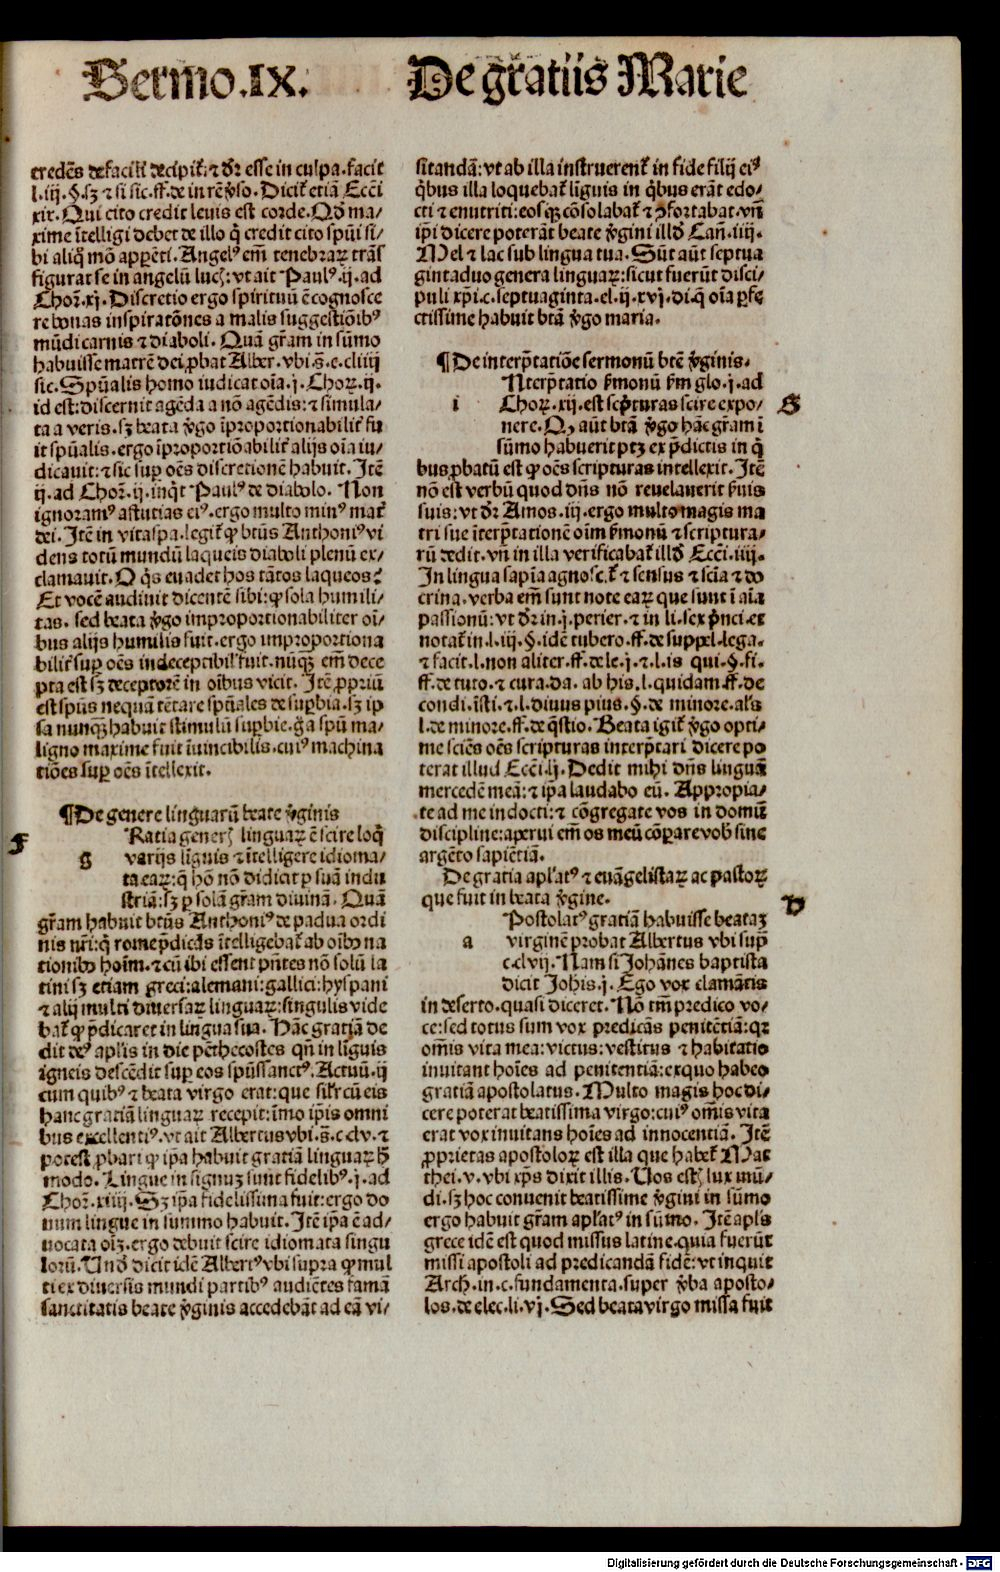 Sermo.IX. De gr̄atiis Marie
credēs de facili decipit᷑:⁊ dr̄ esse in culpa.facit
l.iij.§.sꝫ ⁊ si sic.ff.de in rē v̄so. Dicit᷑ etiā Ecci
xix. Qui cito credit leuis est corde. Qd̄ ma-
xime ītelligi debet de illo q̄ credit cito spūi si-
bi aliq̊ mō appēti. Angelꝰ em̄ tenebraꝝ trās
figurat se in angelū lucꝭ: vt ait Paulꝰ.ij.ad
Choꝝ.xj. Discretio ergo spirituū ē cognosce
re bonas inspiratōnes a malis suggestiōibꝰ
mūdi carnis ⁊ diaboli. Quā gr̄am in sūmo
habuisse matrē dei ꝓbat Alber.vbi.s̄.c.cliiij
sic. Spūalis homo iudicat oīa.j.Choꝝ.ij.
id est:discernit agēda a nō agēdis:⁊ simula-
ta a veris.sꝫ beata v̄go īproportionabilit᷑ fu
it spūalis.ergo īproportiōabilit᷑ alijs oīa iu-
dicauit:⁊ sic suꝑ oēs discretionē habuit. Itē
ij.ad Choꝝ.ij.inq̇t Paulꝰ de diabolo. Non
ignoramꝰ astutias eiꝰ.ergo multo minꝰ mat᷑
dei. Itē in vitaspa.legit᷑ ꝙ btūs Anthoniꝰ vi
dens totū mundū laqueis diaboli plenū ex-
clamauit. O q̇s euadet hos tātos laqueos?
Et vocē audiuit dicentē sibi:ꝙ sola humili-
tas. sed beata v̄go improportionabiliter oī-
bus alijs humilis fuit.ergo improportiona
bilit᷑ suꝑ oēs indeceptibilꝭ fuit.nūqꝫ em̄ dece
pta est sꝫ deceptorē in oībus vicit. Itē ꝓpriū
est spūs nequā tētare spūales de supbia.sꝫ ip
sa nunqꝫ habuit stimulū supbie.g̊a spū ma-
ligno maxime fuit īuincibilis.cuiꝰ machina
tiōes suꝑ oēs ītellexit.
¶De genere linguarū beate v̄ginis
g Ratia generꝭ linguaꝝ ē scire loq̇
F varijs līguis ⁊ ītelligere idioma-
ta eaꝝ:q̄ hō nō didicit ꝑ suā indu
striā:sꝫ ꝑ solā gr̄am diuinā. Quā
gr̄am habuit btūs Anthoniꝰ de padua ordi
nis nr̄i:q̇ rome p̄dicās ītelligebat᷑ ab oībꝫ na
tionibꝫ hoīm.⁊ cū ibi essent p̄ntes nō solū la
tini sꝫ etiam greci:alemani:gallici:hyspani
⁊ alij multi diuersaꝝ linguaꝝ:singulis vide
bat᷑ ꝙ p̄dicaret in lingua sua. Hāc gratiā de
dit deꝰ apl̄is in die pēthecostes qn̄ in līguis
igneis descēdit suꝑ eos spūssanctꝰ. Actuū.ij
cum quibꝰ ⁊ beata virgo erat:que sil᷑r cū eis
hanc gratiā linguaꝝ recepit:īmo ip̄is omni
bus excellentiꝰ.vt ait Albertus vbi.s̄.c.clv.⁊
potest ꝓbari ꝙ ip̄a habuit gratiā linguaꝝ hꝰ
modo. Lingue in signuꝫ sunt fidelibꝰ.j.ad
Choꝝ.xiiij. Sꝫ ip̄a fidelissima fuit:ergo do
num lingue in summo habuit. Itē ip̄a ē ad-
uocata oīꝫ.ergo debuit scire idiomata singu
lorū. Und̄ dicit idē Albertꝰ vbi supra ꝙ mul
ti ex diuersis mundi partibꝰ audiētes famā
sanctitatis beate v̄ginis accedebāt ad eā vi-
sitandā:vt ab illa instruerent᷑ in fide filij eiꝰ
q̇bus illa loquebat᷑ līguis in q̇bus erāt edo-
cti ⁊ enutriti:eosqꝫ cōsolabat᷑ ⁊ ꝯfortabat.vn̄
ip̄i dicere poterāt beate v̄gini illd̄ Can̄.iiij.
Mel ⁊ lac sub lingua tua. Sūt aūt septua
gintaduo genera linguaꝝ:sicut fuerūt disci-
puli xp̄i.c.septuaginta.el.ij.xvj.di.q̄ oīa ꝑfe
ctissime habuit btā v̄go maria.
¶De interp̄tatiōe sermonū btē v̄ginis.
i Nterp̄tatio ẜmonū ẜm glo.j.ad
Choꝝ.xij.est scp̄turas scire expo- G
nere. Qꝙ aūt btā v̄go hāc gr̄am ī
sūmo habuerit ptꝫ ex p̄dictis in q̇
bus ꝓbatū est ꝙ oēs scripturas intellexit. Itē
nō est verbū quod dn̄s nō reuelauerit ẜuis
suis:vt dr̄ Amos.iij.ergo multo magis ma
tri sue īterp̄tationē oīm ẜmonū ⁊ scriptura-
rū dedit.vn̄ in illa verificabat᷑ illd̄ Ecci.iiij.
In lingua sapīa agnosc.t᷑ ⁊ sensus ⁊ scīa ⁊ do
crina.verba em̄ sunt note eaꝝ que sunt ī aīa
passionū:vt dr̄ in.j.perier.⁊ in li.sex p̄nci.et
notat᷑ in.l.iij.§.idē tubero.ff.de suppel.lega.
⁊ facit.l.non aliter.ff.de le.j.⁊.l.is qui.§.fi.
ff.de tuto.⁊ cura.da. ab his.l.quidam.ff.de
condi.īsti.⁊.l.diuus pius.§.de minore.al̄s
l.de minore.ff.de q̄stio. Beata igit᷑ v̄go opti-
me sciēs oēs scripturas interp̄tari dicere po
terat illud Ecci.lj. Dedit mihi dn̄s linguā
mercedē meā:⁊ ip̄a laudabo eū. Appropia-
te ad me indocti:⁊ cōgregate vos in domū
discipline:aperui em̄ os meū cōparevob̄ sine
argēto sapiētiā.
De gratia apl̄atꝰ ⁊ euāgelistaꝝ ac pastoꝝ
que fuit in beata v̄gine.
Postolatꝰ gratiā habuisse beataꝫ H
a virginē probat Albertus vbi sup̄
c.clvij. Nam si Johānes baptista
dicit Johis.j. Ego vox clamātis
in deserto.quasi diceret. Nō tm̄ predico vo-
ce:sed totus sum vox predicās penitētiā:qꝛ
om̄is vita mea:victus:vestitus ⁊ habitatio
inuitant hoīes ad penitentiā:ex quo habeo
gratiā apostolatus. Multo magis hoc di-
cere poterat beatissima virgo:cuiꝰ om̄is vita
erat vox inuitans hoīes ad innocentiā. Itē
ꝓprietas apostoloꝝ est illa que habet᷑ Mat
thei.v.vbi xp̄s dixit illis. Uos estꝭ lux mū-
di.sꝫ hoc conuenit beatissime v̄gini in sūmo
ergo habuit gr̄am apl̄atꝰ in sūmo. Itē apl̄s
grece idē est quod missus latine.quia fuerūt
missi apostoli ad predicandā fidē:vt inquit
Arch.in.c.fundamenta.super v̄ba aposto-
los.de elec.li.vj. Sed beata virgo missa fuit
Digitalisierung gefördert durch die Deutsche Forschungsgemeinschaft - DFG